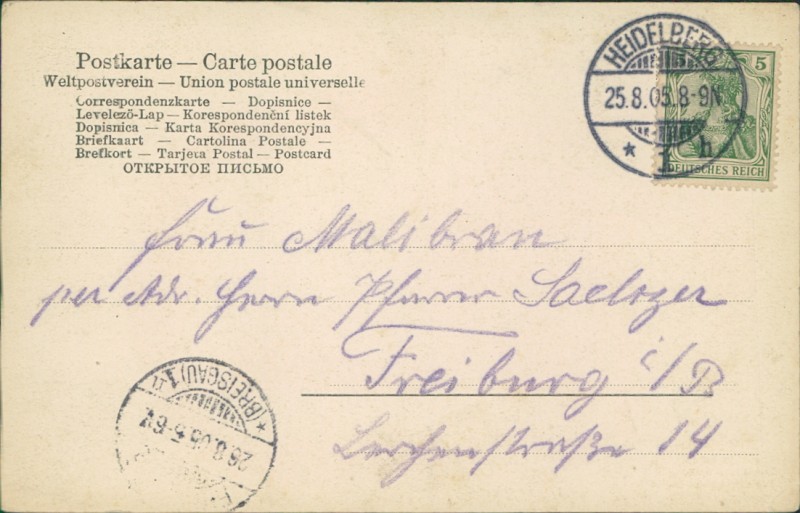 Postkarte — Carte postale
Weltpostverein — Union postale universelle
Correspondenzkarte — Dopisnice —
Levelező-Lap — Korespondenční listek
Dopisnica — Karta Korespondencyjna
Briefkaart — Cartolina Postale —
Brefkort — Tarjeta Postal — Postcard
ОТКРЫТОЕ ПИСЬМО
HEIDELBERG
25.8.05.8-9N
* 1 h
5
DEUTSCHES REICH
Frau Malibran
per Adr. Herrn Pfarrer
Freiburg i/B
Lerchenstraße 14
* (BREISGAU) 1 n
26.8.05.5-6V